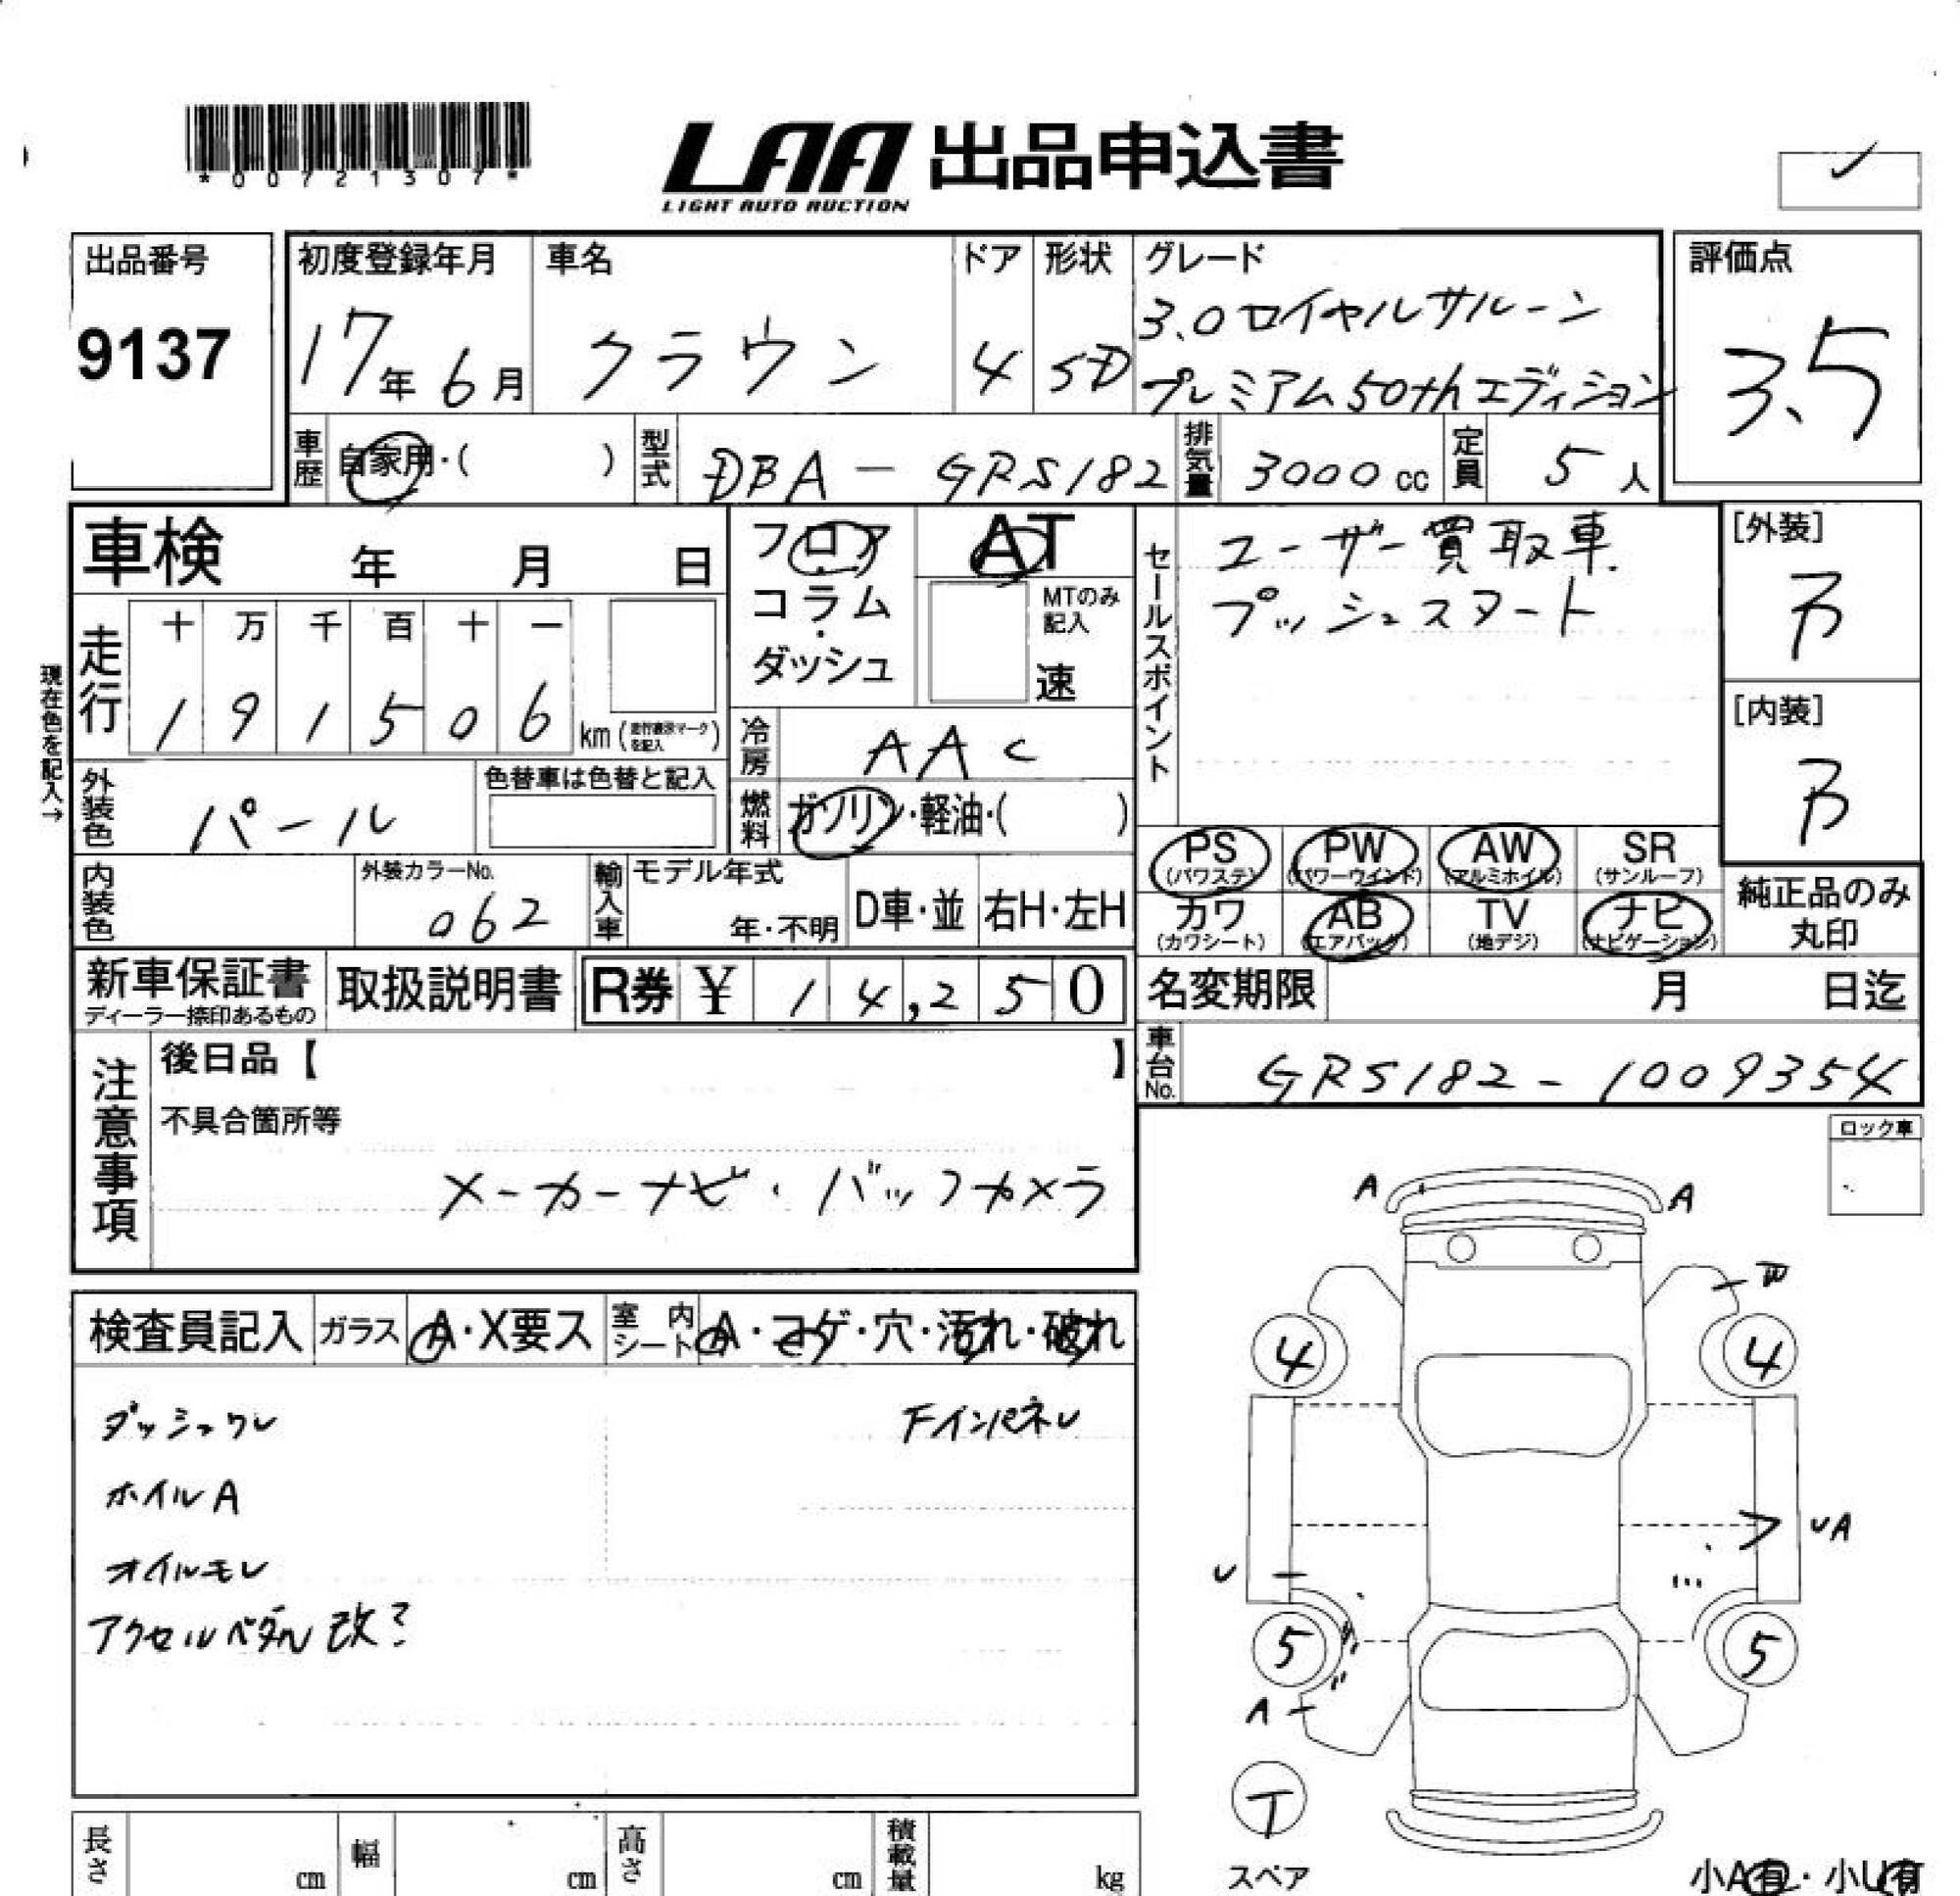 *00721307*
LAA 出品申込書
LIGHT AUTO AUCTION
出品番号
9137
初度登録年月
17年6月
車名
クラウン
ドア
4
形状
SD
グレード
3.0ロイヤルサルーン
プレミアム50thエディション
評価点
3.5
車歴 自家用・( )
型式 DBA-GRS182
排気量 3000cc
定員 5人
車検 年 月 日
フロア
コラム
・
ダッシュ
AT
MTのみ
記入
速
セールスポイント
ユーザー買取車.
プッシュスタート
[外装]
B
[内装]
B
現在色を記入→
走行
十 万 千 百 十 一
1 9 1 5 0 6 km
冷房 AAC
外装色 パール
色替車は色替と記入
燃料 ガソリン・軽油・( )
PS (パワステ)
PW (パワーウインド)
AW (アルミホイル)
SR (サンルーフ)
カワ (カワシート)
AB (エアバッグ)
TV (地デジ)
ナビ (ナビゲーション)
純正品のみ
丸印
内装色
外装カラーNo.
062
輸入車
モデル年式
年・不明
D車・並
右H・左H
新車保証書
ディーラー捺印あるもの
取扱説明書
R券 ¥ 14,250
名変期限 月 日迄
車台No. GRS182-1009354
注意事項
後日品【 】
不具合箇所等
メーカーナビ・バックカメラ
ロック車
検査員記入
ガラス A・X要ス
室内シート A・コゲ・穴・汚れ・破れ
ダッシュワレ
Fインパネレ
ホイルA
オイルモレ
アクセルペダル改?
A
A
4
4
UA
U
5
5
A
T
スペア
長さ cm
幅 cm
高さ cm
積載量 kg
小A有・小U有